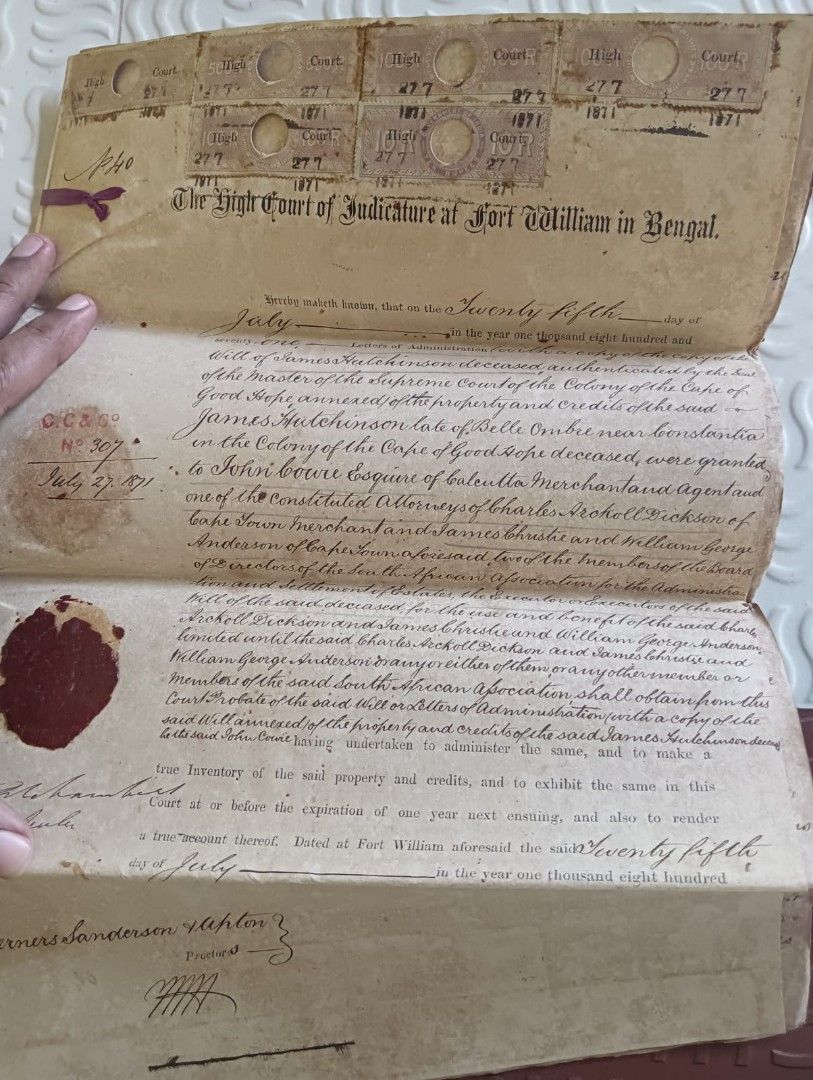 High Court. High Court. High Court. High Court.
277 277 277 277 277 277
1871 1871 1871 1871 1871
High Court. High Court.
277 277 277 277
1871 1871 1871 1871
No 40
The High Court of Judicature at Fort William in Bengal.
Hereby maketh known, that on the Twenty fifth day of
July in the year one thousand eight hundred and
seventy-one, Letters of Administration (with a copy of the copy of the
Will of James Hutchinson deceased, authenticated by the Seal
of the Master of the Supreme Court of the Colony of the Cape of
Good Hope, annexed) of the property and credits of the said
James Hutchinson late of Belle Ombre near Constantia
in the Colony of the Cape of Good Hope deceased, were granted
to John Cowie Esquire of Calcutta Merchant and Agent and
one of the constituted Attorneys of Charles Arckoll Dickson of
Cape Town Merchant and James Christie and William George
Anderson of Cape Town aforesaid, two of the Members of the Board
of Directors of the South African Association for the Administra
tion and Settlement of Estates, the Executor or Executors of the said
Will of the said deceased, for the use and benefit of the said Charles
Arckoll Dickson and James Christie and William George Anderson,
limited until the said Charles Arckoll Dickson and James Christie and
William George Anderson or any or either of them, or any other member or
members of the said South African Association, shall obtain from this
Court Probate of the said Will or Letters of Administration (with a copy of the
said Will annexed) of the property and credits of the said James Hutchinson deceased
he the said John Cowie having undertaken to administer the same, and to make a
true Inventory of the said property and credits, and to exhibit the same in this
Court at or before the expiration of one year next ensuing, and also to render
a true account thereof. Dated at Fort William aforesaid the said Twenty fifth
day of July in the year one thousand eight hundred
C.C & Co
No. 307
July 27. 1871
erners Sanderson & Upton
Proctors